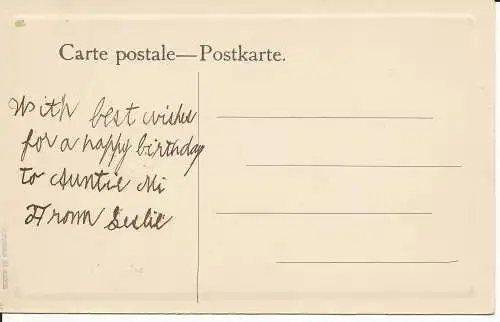 Carte postale—Postkarte.
With best wishes
for a happy birthday
to Auntie Mi
From Leslie